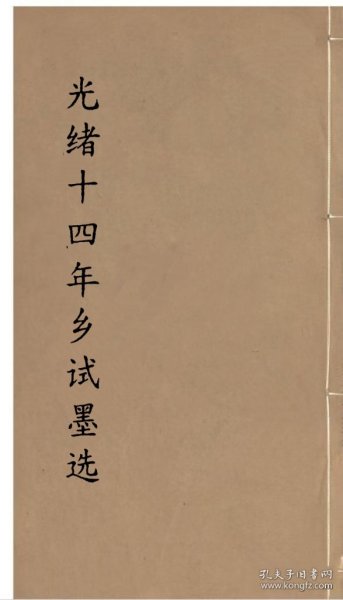 光绪十四年乡试墨选
孔夫子旧书网
www.kongfz.com